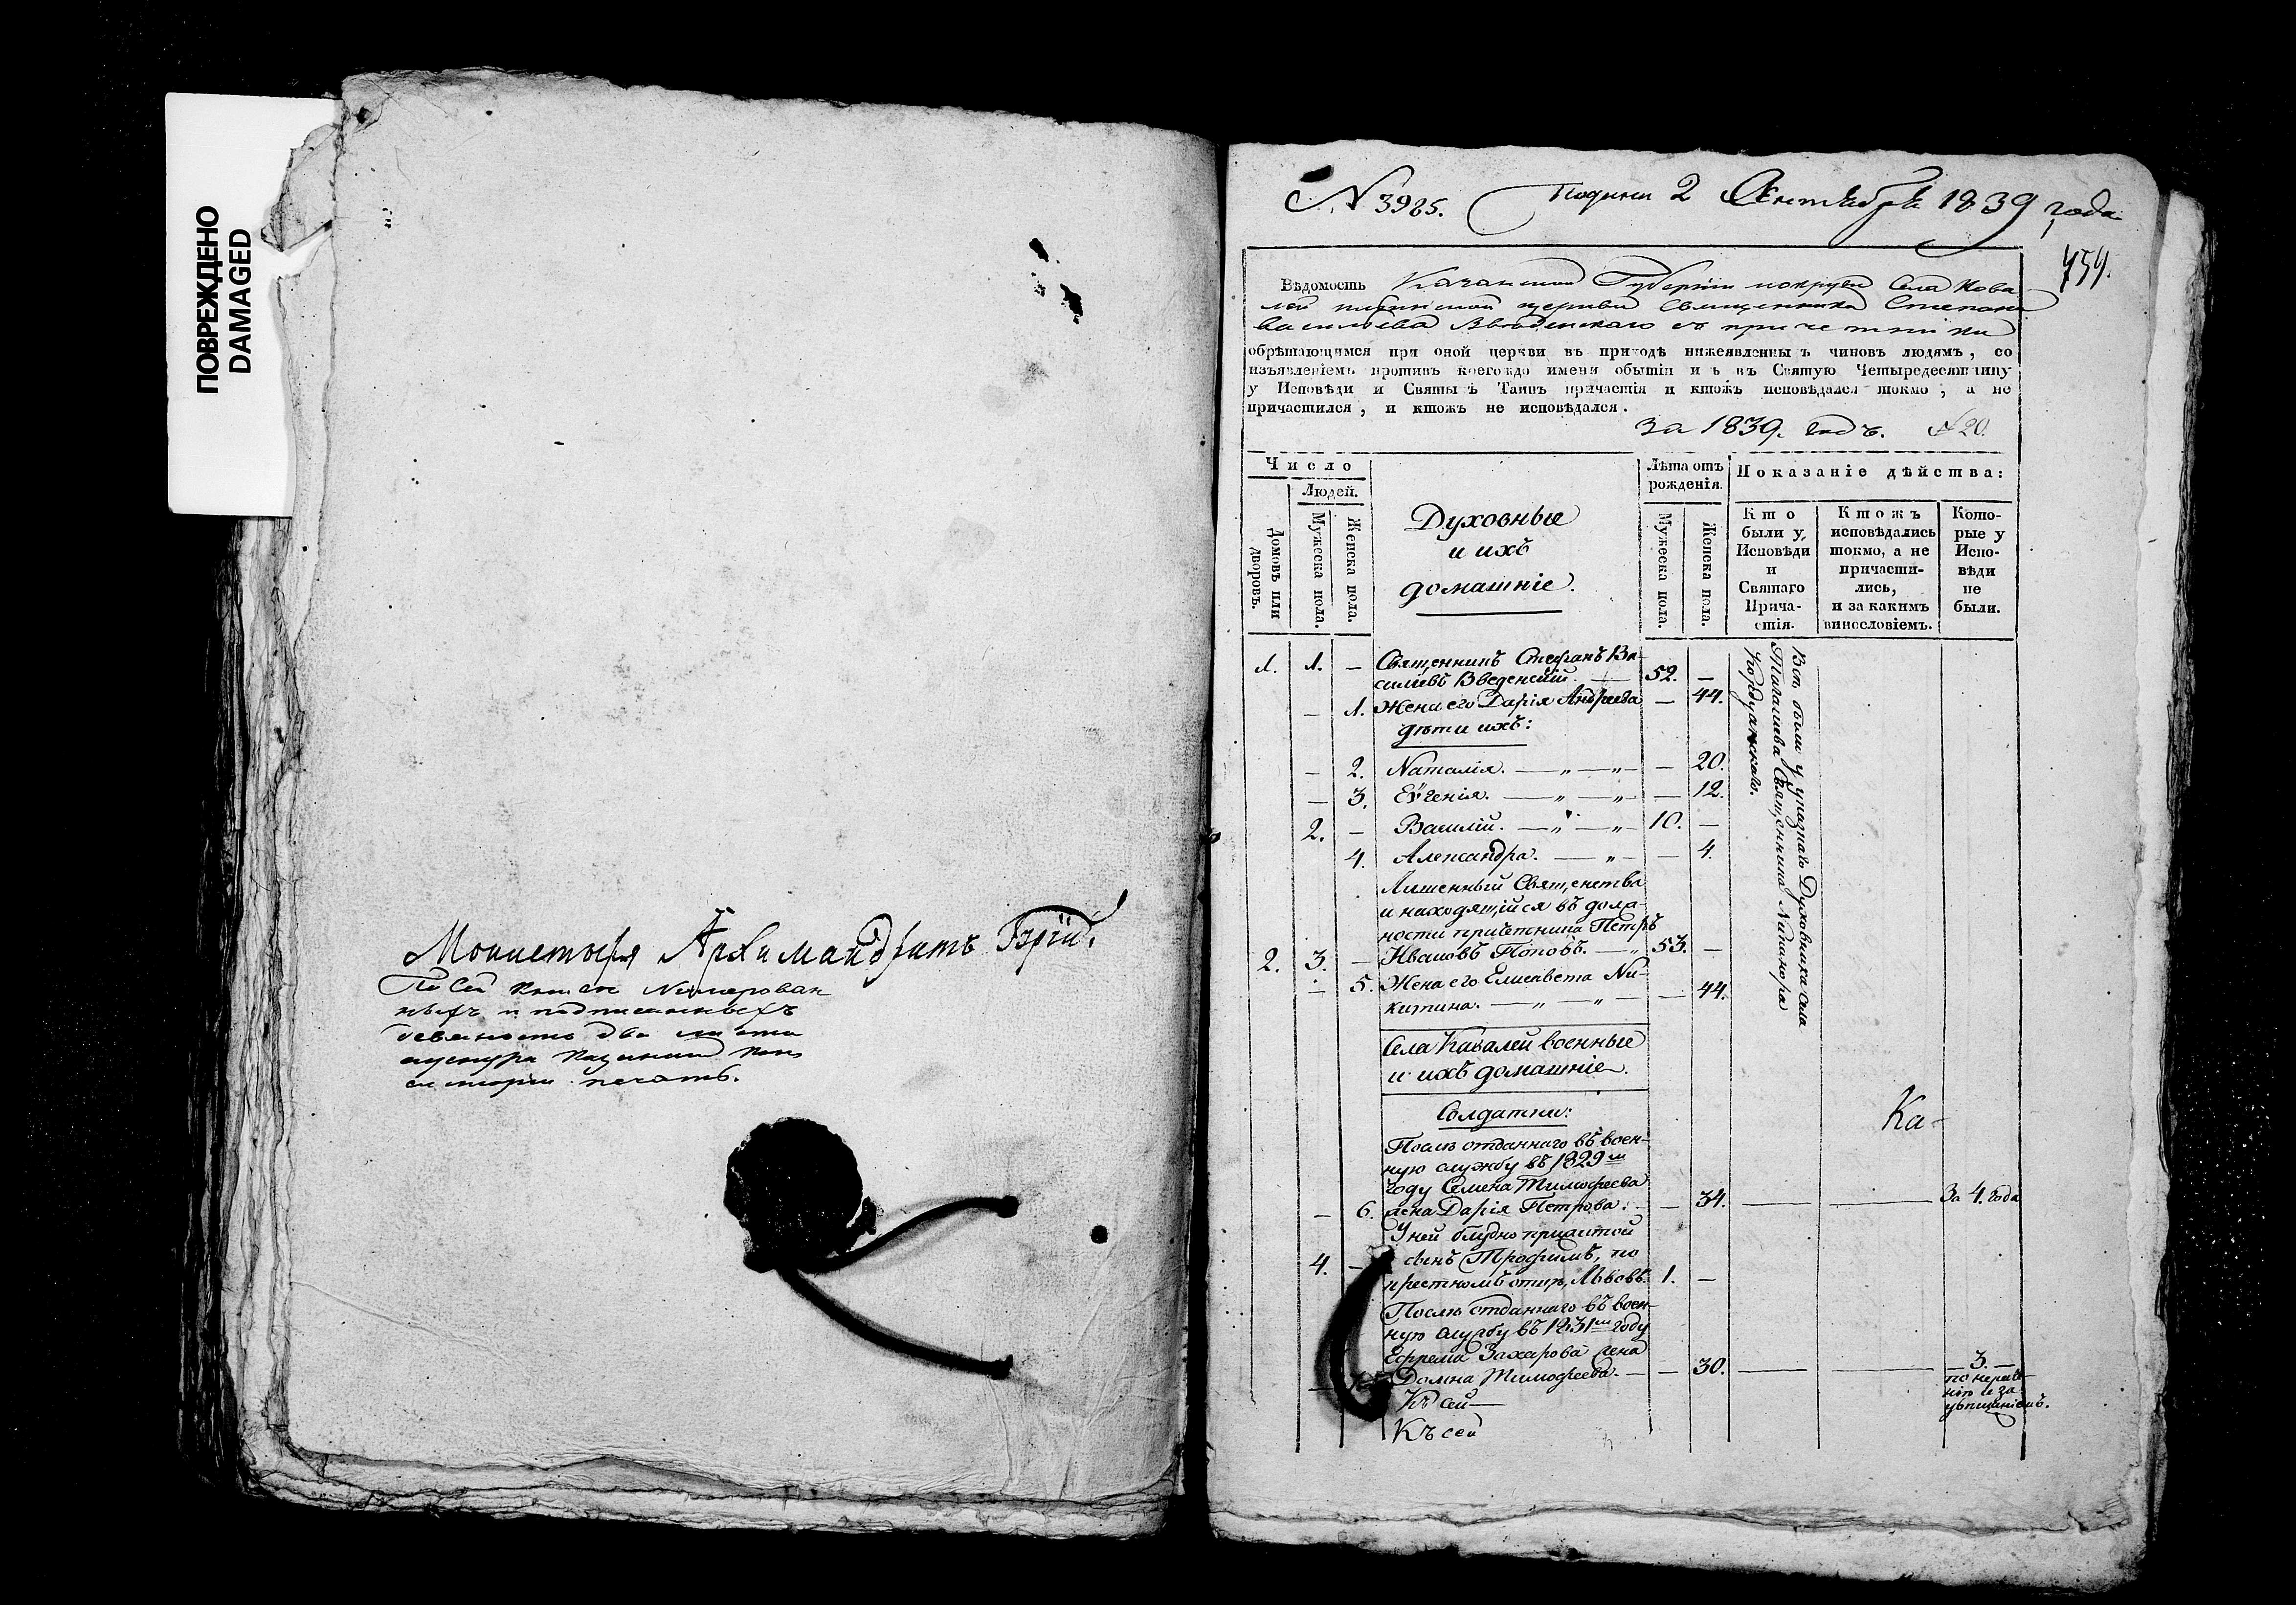 ПОВРЕЖДЕНО
DAMAGED
Монастыря Архимандритъ Гурій.
По сей книге Нумерован
ныхъ и подписанныхъ
девяносто два листа
печать.
N 3985. Подана 2 Октября 1839 года
459.
Вѣдомость Казанской Губерніи Села Кова
лей церкви Священника Степана
Васильева Введенскаго съ причетники
обрѣтающимся при оной церкви въ приходѣ нижеявленныхъ чиновъ людямъ, со
изъявленіемъ противъ коегождо имени обытіи ихъ въ Святую Четыредесятницу
у Исповѣди и Святыхъ Таинъ причастія и ктожъ исповѣдался токмо, а не
причастился, и ктожъ не исповѣдался.
за 1839. годъ. № 20.
Число
Людей.
Домовъ или дворовъ.
Мужеска пола.
Женска пола.
Духовные
и ихъ
домашніе.
Лѣта отъ
рожденія.
Мужеска пола.
Женска пола.
Показаніе дѣйства:
Кто
были у
Исповѣди
и
Святаго
Прича-
стія.
Ктожъ
исповѣдались
токмо, а не
причасти-
лись,
и за какимъ
винословіемъ.
Кото-
рые у
Испо-
вѣди
не
были.
1. 1. — Священникъ Стефанъ Ва-
сильевъ Введенскій. — 52. —
— 1. Жена его Дарія Андреева — 44.
дѣти ихъ:
— 2. Наталія. — „ — „ — — 20.
— 3. Еѵгенія. — „ — „ — — 12.
2. — Василій. — „ — „ — 10. —
4. Александра. — „ — — 4.
Лишенный Священства
и находящійся въ долж-
ности причетника Петръ
2. 3. — Ивановъ Поповъ. — „ 53. —
— 5. Жена его Елисавета Ни-
китина. — „ — „ — — 44.
Всѣ были у Духовника села
Священника Никанора
Села Кавалей военные
и ихъ домашніе.
Солдатки:
Ка-
Послѣ отданнаго въ воен-
ную службу въ 1829м
году Семена Тимофеева
— 6. жена Дарія Петрова. — 34. — — За 4. года
У ней блудно прижитой
4. — сынъ Трофимъ, по
крестномъ отцѣ, Львовъ. 1. —
Послѣ отданнаго въ воен-
ную службу въ 1831м году
Ефрема Захарова жена
— Домна Тимофеева. — — 30. — — — 3. —
по нераде-
нію и за-
Къ сей —
Къ сей